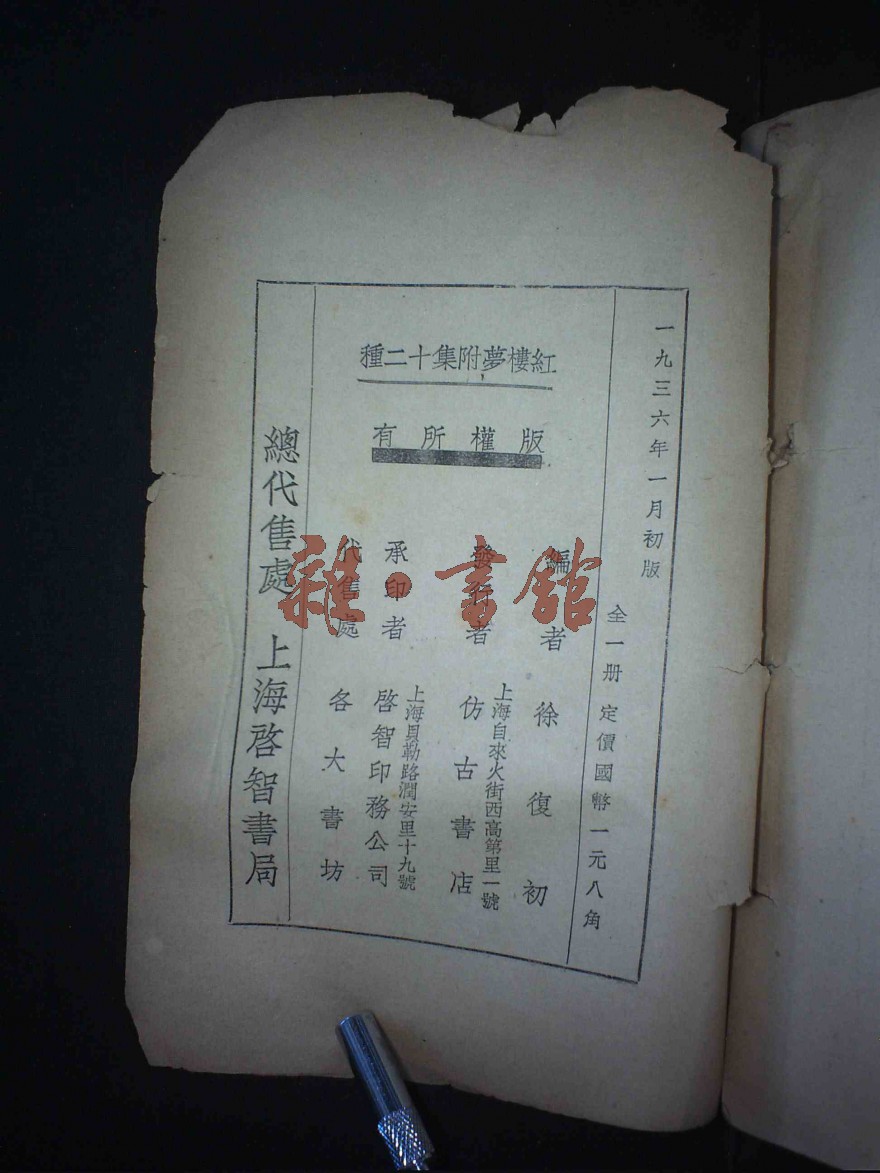 一九三六年一月初版
全一册 定價國幣一元八角
紅樓夢附集十二種
版權所有
編者 徐復初
發行者 仿古書店
上海自來火街西高第里一號
承印者 啓智印務公司
上海貝勒路潤安里十九號
代售處 各大書坊
總代售處 上海啓智書局
雜·書館